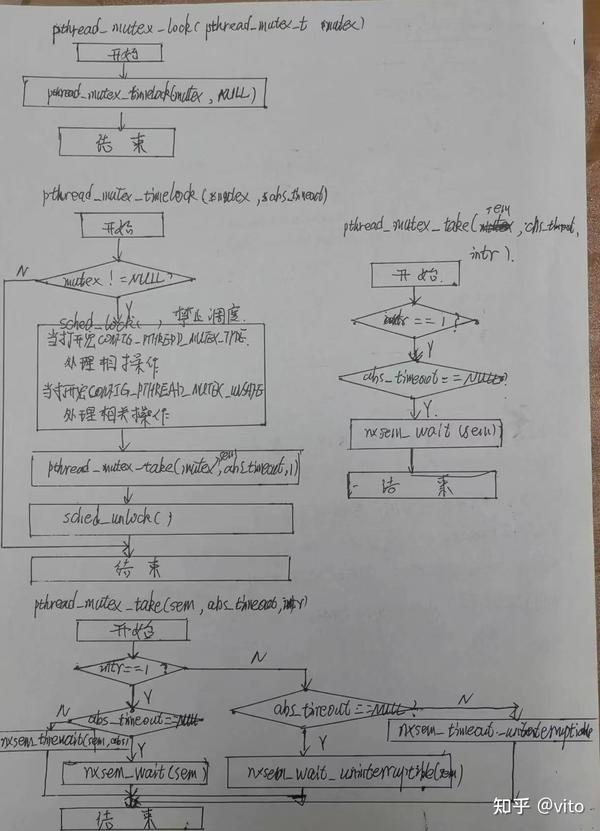 pthread_mutex_lock( pthread_mutex_t *mutex)
开始
pthread_mutex_timelock(mutex, NULL)
结 束
pthread_mutex_timelock (*mutex, *abs_timeout)
开始
N
mutex != NULL?
Y
sched_lock(), 禁止调度.
当打开宏CONFIG_PTHREAD_MUTEX_TYPE.
处理相关操作
当打开宏CONFIG_PTHREAD_MUTEX_UNSAFE
处理相关操作
pthread_mutex_take(mutex, sem, abs_timeout, 1)
sched_unlock();
结 束
pthread_mutex_take( sem, abs_timeout,
intr).
开始.
intr == 1 ?
Y
abs_timeout == NULL?
Y.
nxsem_wait (sem)
结 束
pthread_mutex_take(sem, abs_timeout, intr)
开始
intr==1 ?
N
Y
abs_timeout == NULL
N
abs_timeout == NULL ?
N
nxsem_timewait(sem, abs)
nxsem_timeout_uninterruptible
Y
Y
nxsem_wait(sem)
nxsem_wait_uninterruptible(sem)
结 束
知乎 @vito